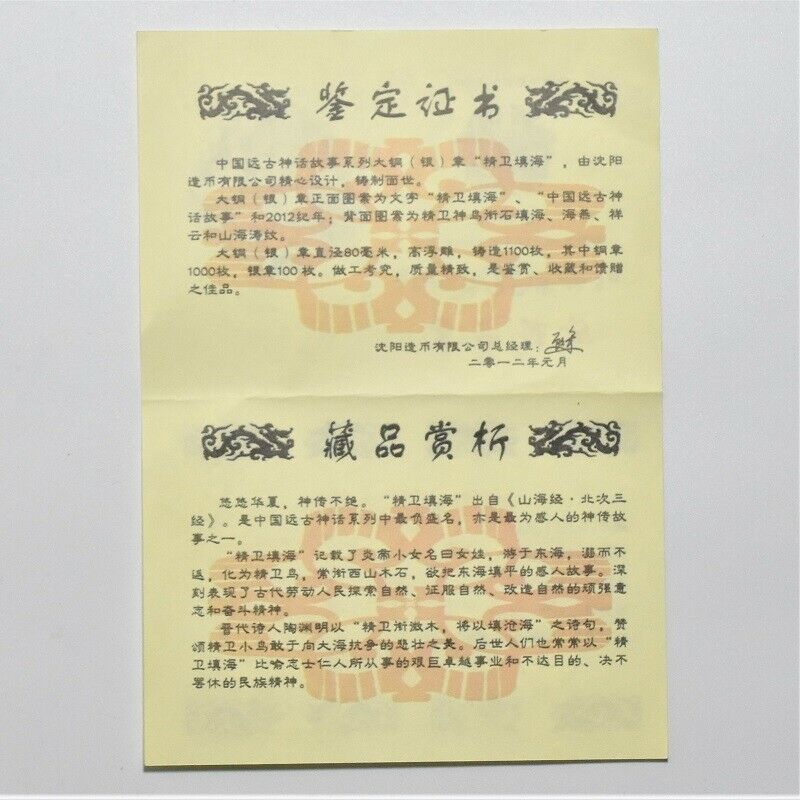 鉴定证书
中国远古神话故事系列大铜（银）章“精卫填海”，由沈阳
造币有限公司精心设计，铸制面世。
大铜（银）章正面图案为文字“精卫填海”、“中国远古神
话故事”和2012纪年；背面图案为精卫神鸟衔石填海、海燕、祥
云和山海涛纹。
大铜（银）章直径80毫米，高浮雕，铸造1100枚，其中铜章
1000枚，银章100枚。做工考究，质量精致，是鉴赏、收藏和馈赠
之佳品。
沈阳造币有限公司总经理：
二零一二年元月
藏品赏析
悠悠华夏，神传不绝。“精卫填海”出自《山海经·北次三
经》。是中国远古神话系列中最负盛名，亦是最为感人的神传故
事之一。
“精卫填海”记载了炎帝小女名曰女娃，游于东海，溺而不
返，化为精卫鸟，常衔西山木石，欲把东海填平的感人故事。深
刻表现了古代劳动人民探索自然、征服自然、改造自然的顽强意
志和奋斗精神。
晋代诗人陶渊明以“精卫衔微木，将以填沧海”之诗句，赞
颂精卫小鸟敢于向大海抗争的悲壮之美。后世人们也常常以“精
卫填海”比喻志士仁人所从事的艰巨卓越事业和不达目的、决不
罢休的民族精神。